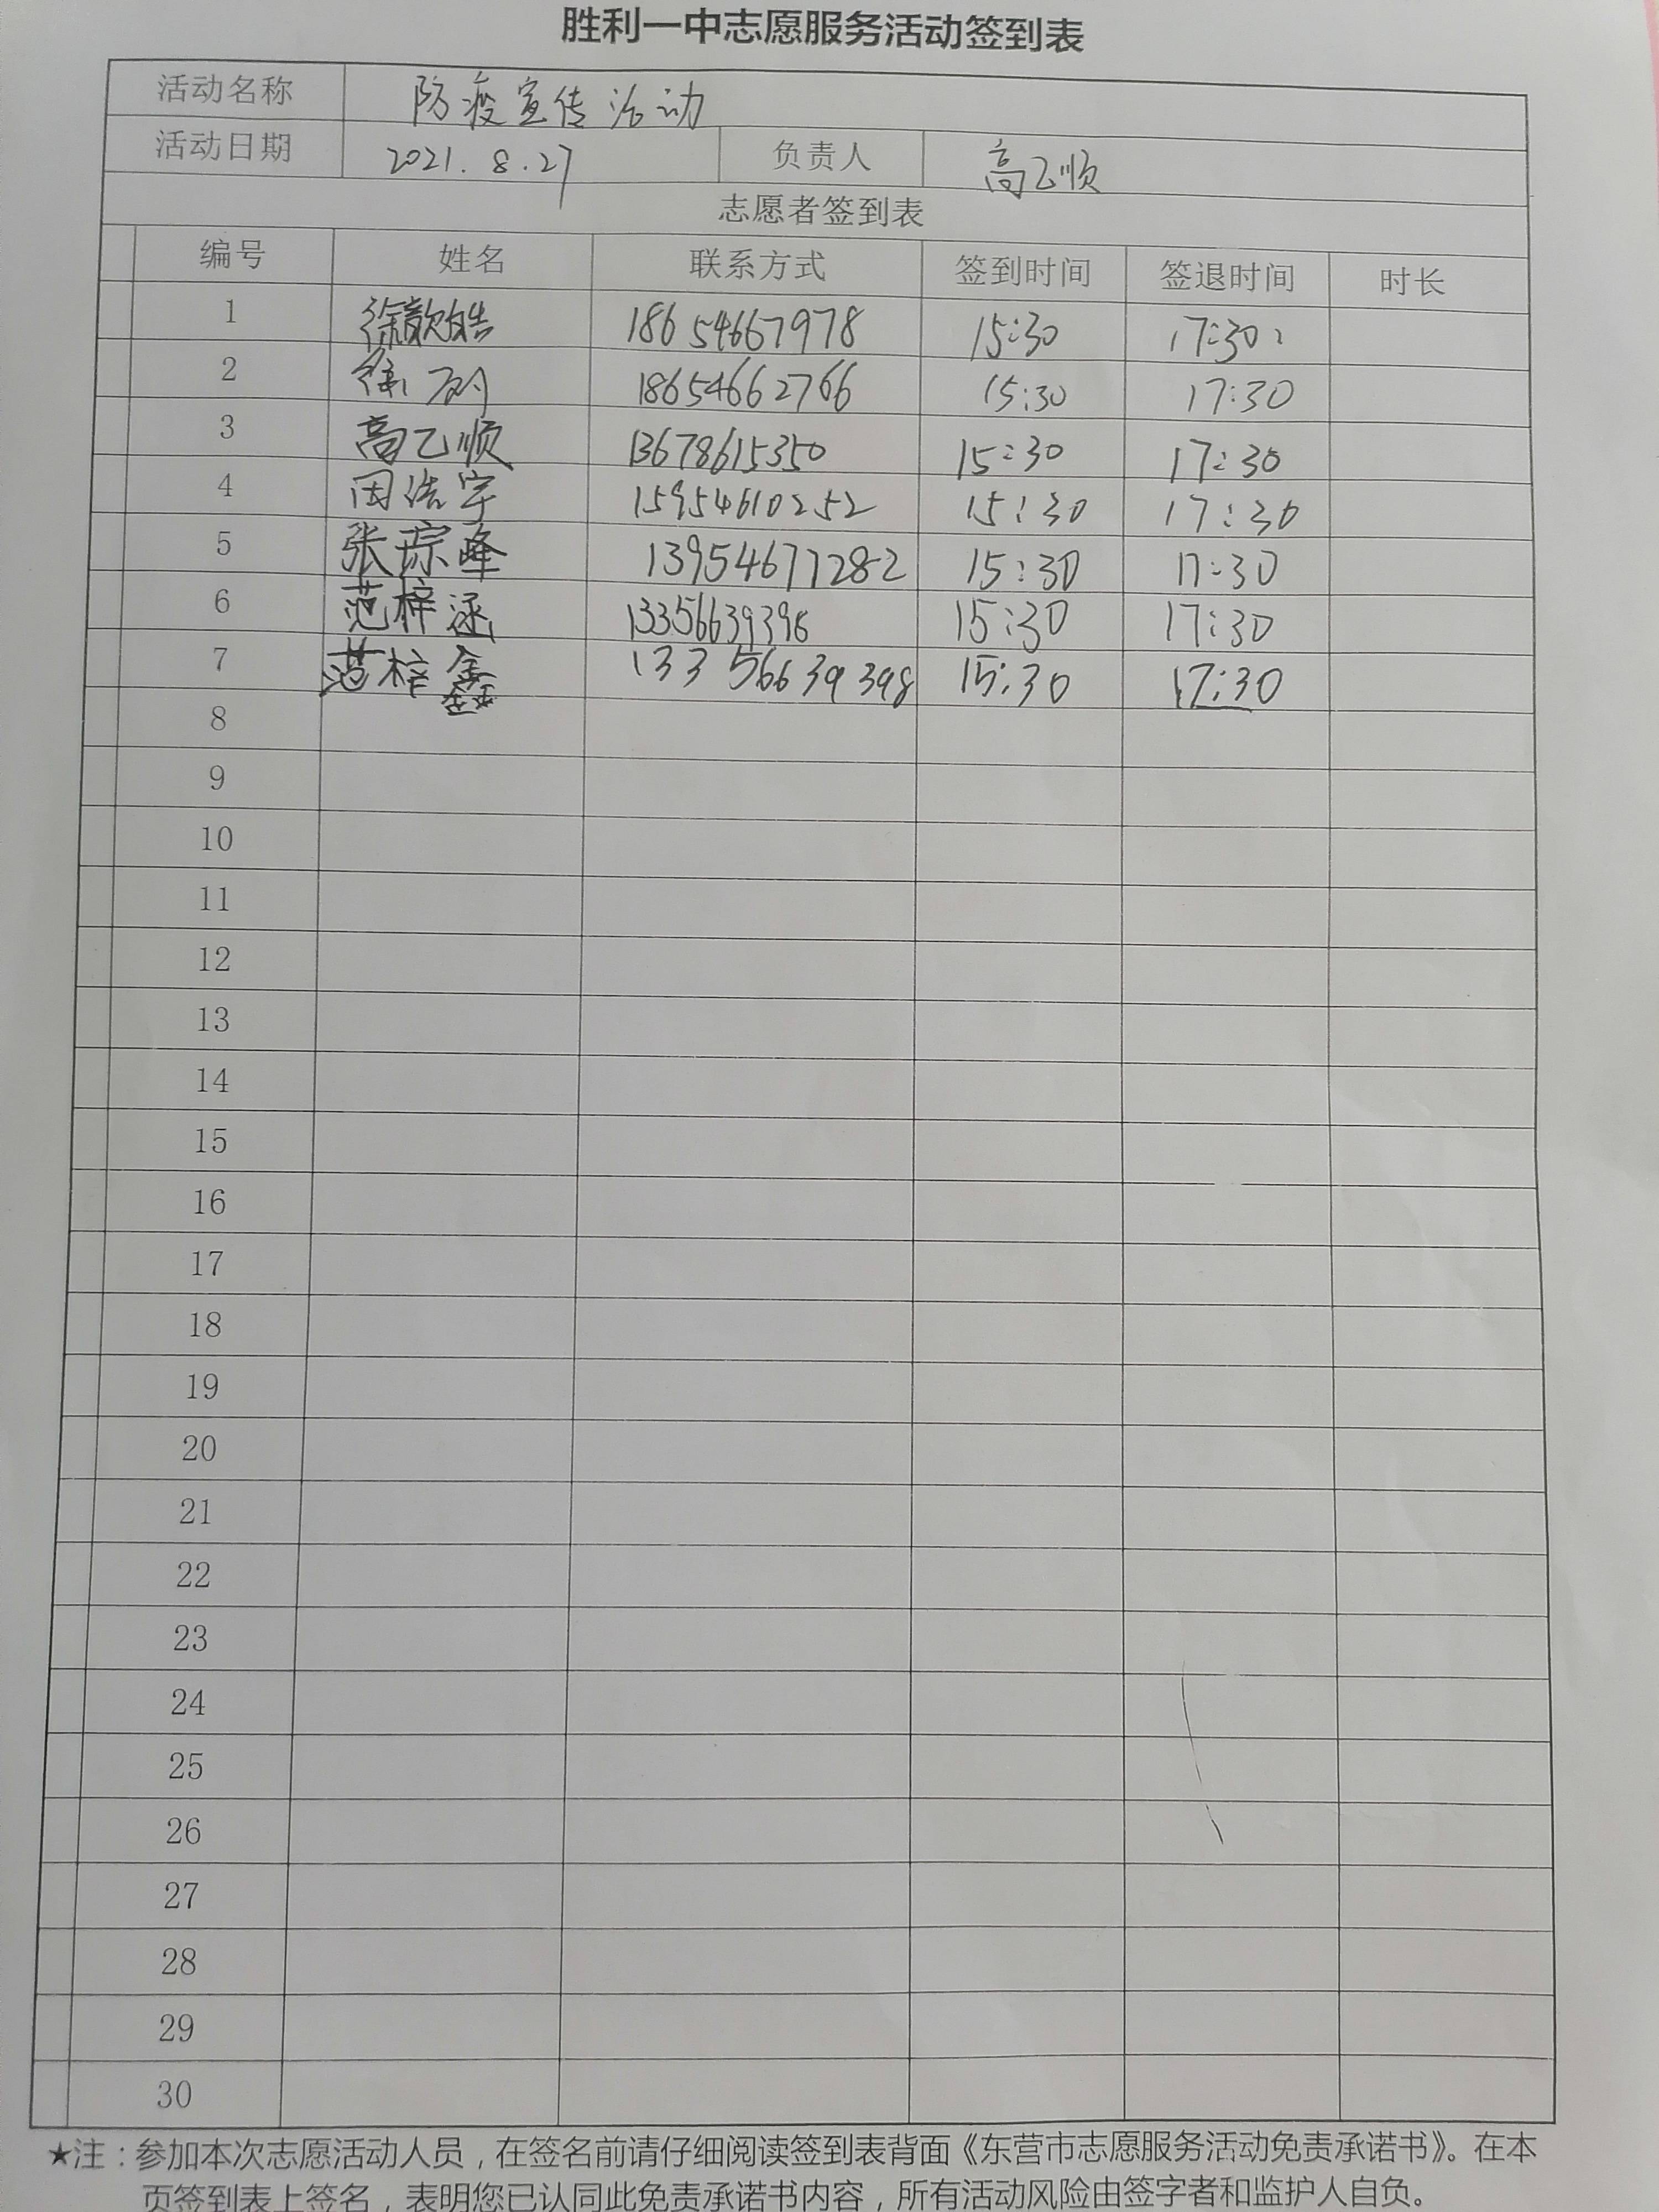 胜利一中志愿服务活动签到表
活动名称 防疫宣传活动
活动日期 2021.8.27 负责人 高乙顺
志愿者签到表
编号 姓名 联系方式 签到时间 签退时间 时长
1 徐歆皓 18654667978 15:30 17:30
2 徐 18654662766 15:30 17:30
3 高乙顺 13678615350 15:30 17:30
4 田浩宇 15954610252 15:30 17:30
5 张琮峰 13954677282 15:30 17:30
6 范梓涵 13356639398 15:30 17:30
7 范梓鑫 13356639398 15:30 17:30
8
9
10
11
12
13
14
15
16
17
18
19
20
21
22
23
24
25
26
27
28
29
30
★注：参加本次志愿活动人员，在签名前请仔细阅读签到表背面《东营市志愿服务活动免责承诺书》。在本
页签到表上签名，表明您已认同此免责承诺书内容，所有活动风险由签字者和监护人自负。